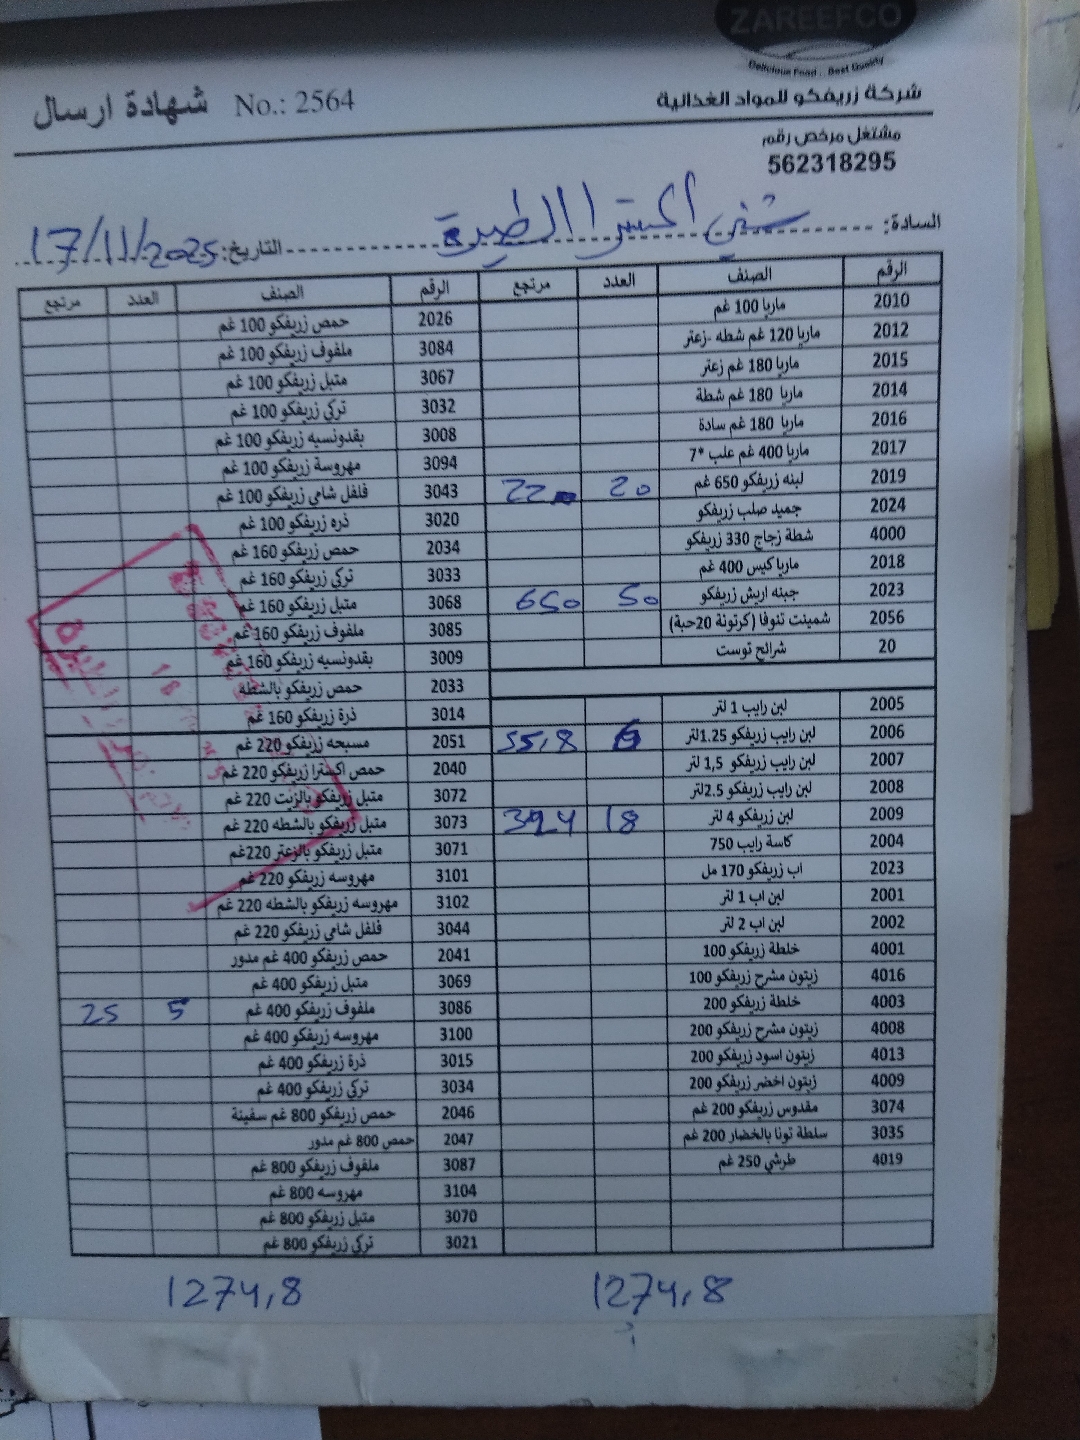 ZAREEFCO
Delicious Food .. Best Quality
شركة زريفكو للمواد الغذائية
شهادة ارسال No.: 2564
مشتغل مرخص رقم
562318295
السادة: الطيرة
التاريخ: 17/11/2025
الرقم الصنف العدد مرتجع
2010 ماريا 100 غم
2012 ماريا 120 غم شطه -زعتر
2015 ماريا 180 غم زعتر
2014 ماريا 180 غم شطة
2016 ماريا 180 غم سادة
2017 ماريا 400 غم علب *7
2019 لبنه زريفكو 650 غم 20 220
2024 جميد صلب زريفكو
4000 شطة زجاج 330 زريفكو
2018 ماريا كيس 400 غم
2023 جبنه اريش زريفكو 50 650
2056 شمينت تنوفا (كرتونة 20حبة)
20 شرائح توست
2005 لبن رايب 1 لتر
2006 لبن رايب زريفكو 1.25لتر 6 55,8
2007 لبن رايب زريفكو 1,5 لتر
2008 لبن رايب زريفكو 2.5لتر
2009 لبن زريفكو 4 لتر 18 324
2004 كاسة رايب 750
2023 اب زريفكو 170 مل
2001 لبن اب 1 لتر
2002 لبن اب 2 لتر
4001 خلطة زريفكو 100
4016 زيتون مشرح زريفكو 100
4003 خلطة زريفكو 200
4008 زيتون مشرح زريفكو 200
4013 زيتون اسود زريفكو 200
4009 زيتون اخضر زريفكو 200
3074 مقدوس زريفكو 200 غم
3035 سلطة تونا بالخضار 200 غم
4019 طرشي 250 غم
الرقم الصنف العدد مرتجع
2026 حمص زريفكو 100 غم
3084 ملفوف زريفكو 100 غم
3067 متبل زريفكو 100 غم
3032 تركي زريفكو 100 غم
3008 بقدونسيه زريفكو 100 غم
3094 مهروسة زريفكو 100 غم
3043 فلفل شامي زريفكو 100 غم
3020 ذره زريفكو 100 غم
2034 حمص زريفكو 160 غم
3033 تركي زريفكو 160 غم
3068 متبل زريفكو 160 غم
3085 ملفوف زريفكو 160 غم
3009 بقدونسيه زريفكو 160 غم
2033 حمص زريفكو بالشطه
3014 ذرة زريفكو 160 غم
2051 مسبحه زريفكو 220 غم
2040 حمص اكسترا زريفكو 220 غم
3072 متبل زريفكو بالزيت 220 غم
3073 متبل زريفكو بالشطه 220 غم
3071 متبل زريفكو بالزعتر 220غم
3101 مهروسه زريفكو 220 غم
3102 مهروسه زريفكو بالشطه 220 غم
3044 فلفل شامي زريفكو 220 غم
2041 حمص زريفكو 400 غم مدور
3069 متبل زريفكو 400 غم
3086 ملفوف زريفكو 400 غم 5 25
3100 مهروسه زريفكو 400 غم
3015 ذرة زريفكو 400 غم
3034 تركي زريفكو 400 غم
2046 حمص زريفكو 800 غم سفينة
2047 حمص 800 غم مدور
3087 ملفوف زريفكو 800 غم
3104 مهروسه 800 غم
3070 متبل زريفكو 800 غم
3021 تركي زريفكو 800 غم
1274,8
1274,8